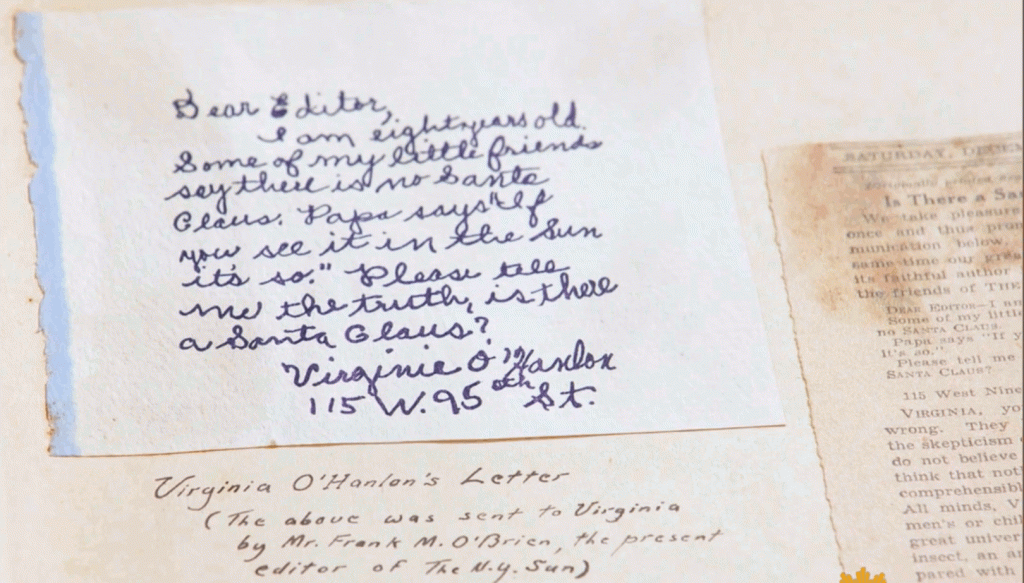 Dear Editor,
I am eight years old.
Some of my little friends
say there is no Santa
Claus. Papa says "If
you see it in the Sun
it's so." Please tell
me the truth, is there
a Santa Claus?
Virginia O'Hanlon
115 W. 95th St.
Virginia O'Hanlon's Letter
(The above was sent to Virginia
by Mr. Frank M. O'Brien, the present
editor of The N.Y. Sun)
SATURDAY, DECEM
Is There a Sa
We take pleasure
once and thus pro
munication below,
same time our grea
its faithful author
the friends of THE
DEAR EDITOR—I am
Some of my little
no SANTA CLAUS.
Papa says "If y
It's so."
Please tell me
SANTA CLAUS?
115 West Nine
VIRGINIA, yo
wrong. They
the skepticism
do not believe
think that not
comprehensibl
All minds, V
men's or chil
great univer
insect, an an
pared with